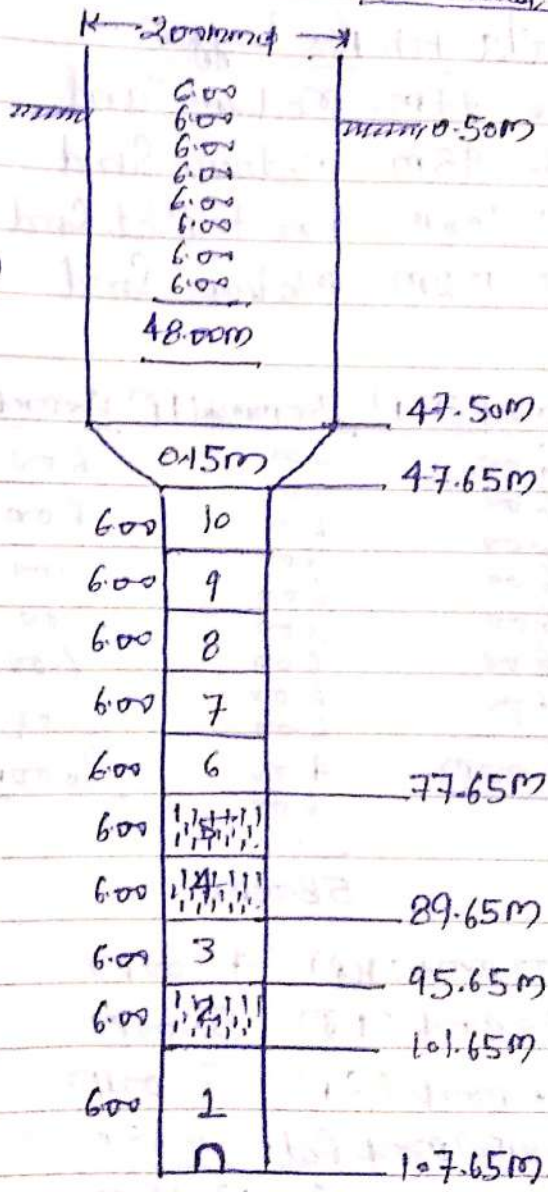 200mmφ
6.00
6.00
0.50m
6.00
6.00
6.00
6.00
6.00
6.00
48.00m
47.50m
0.15m
47.65m
6.00 10
6.00 9
6.00 8
6.00 7
6.00 6
77.65m
6.00 5
6.00 4
89.65m
6.00 3
95.65m
6.00 2
101.65m
6.00 1
107.65m